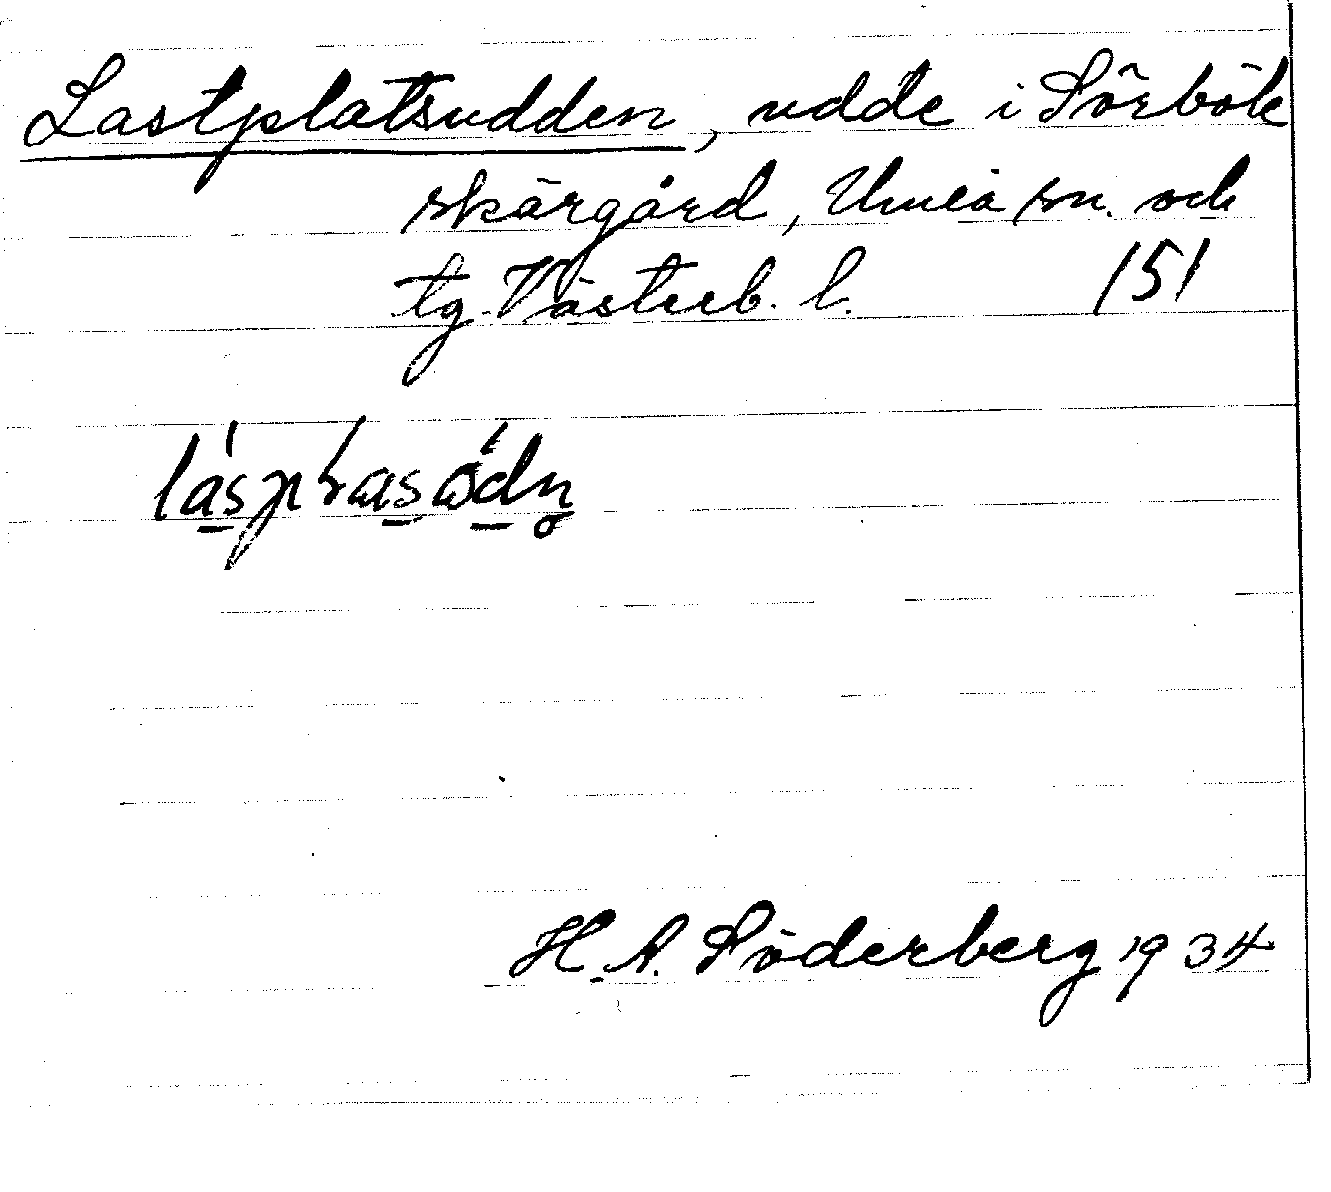 Lastplatsudden, udde i Sörböle
skärgård, Umeå sn. och
tg. Västerb. l. 151
H. A. Söderberg 1934